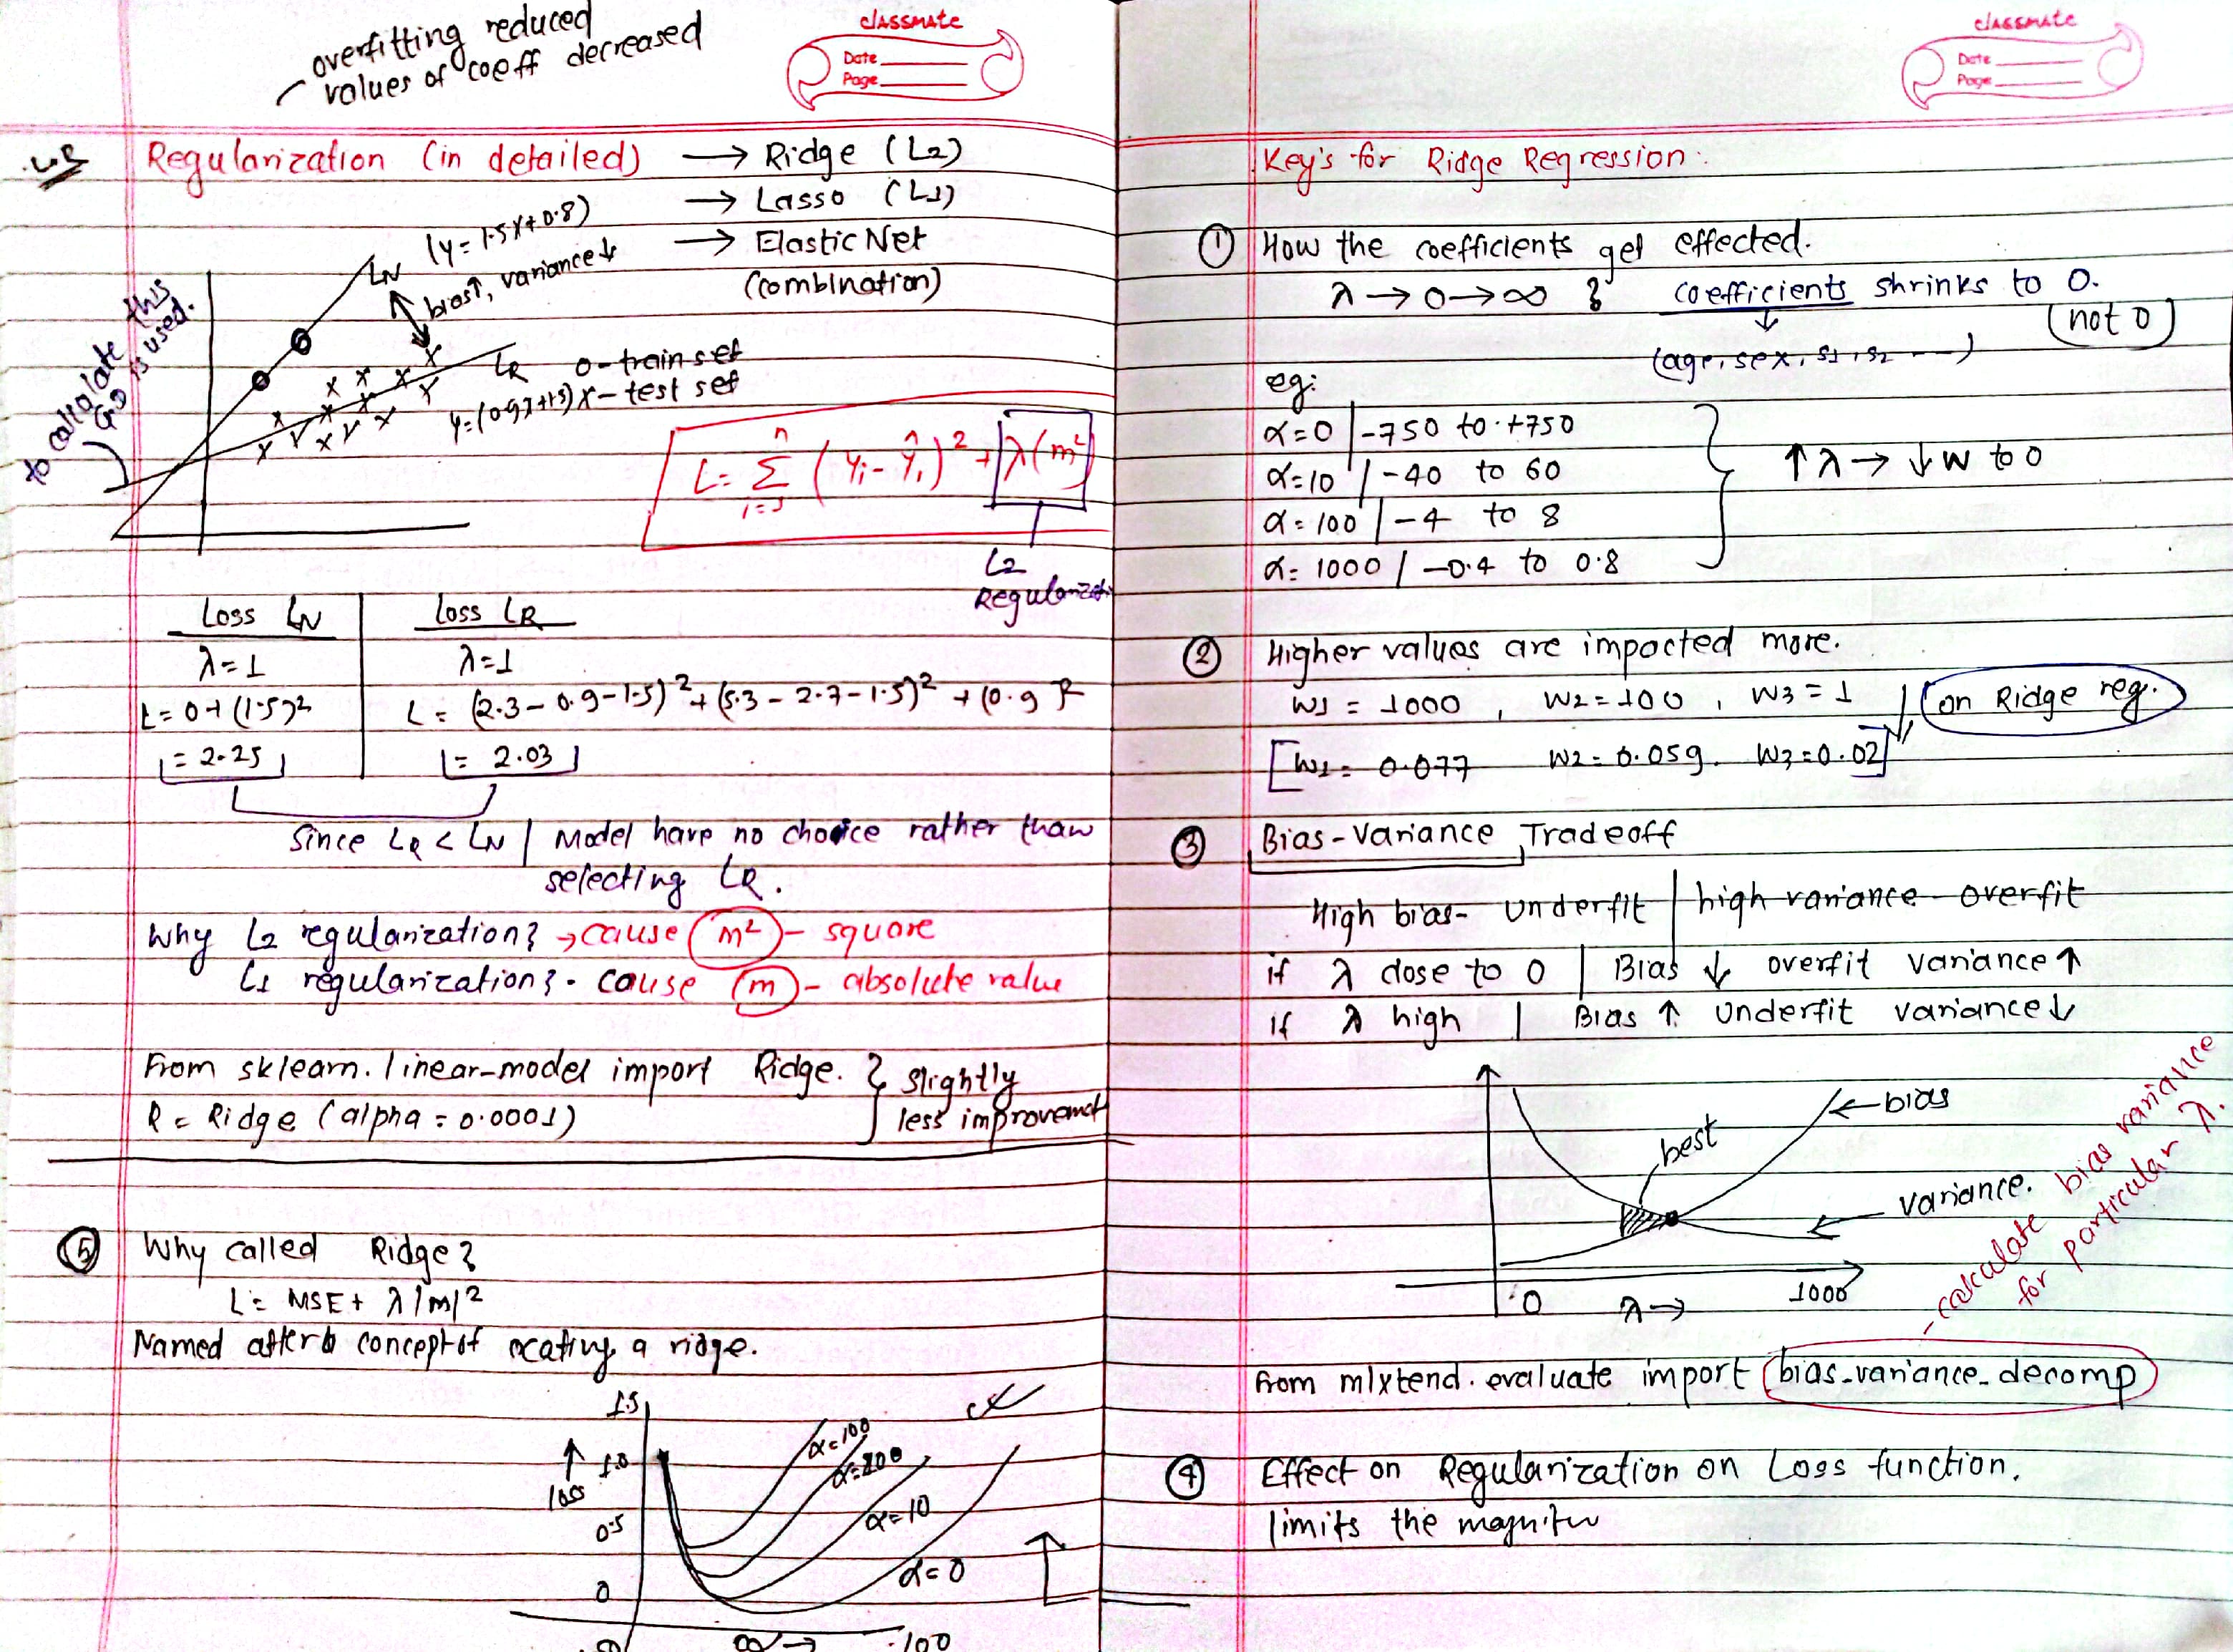 overfitting reduced
values of coeff decreased
classmate
Date
Page
Regularization (in detailed) → Ridge (L2)
→ Lasso (L1)
→ Elastic Net
(combination)
LN (y = 1.5x+0.8)
bias↑, variance↓
to calculate this
GD is used.
LR
0 - train set
x - test set
L = Σ (yi - ŷi)² + λ(m²)
n
i=1
L2
Regularizati
Loss LN | Loss LR
λ=1 | λ=1
L = 0 + (1.5)² | L = (2.3 - 0.9 - 1.5)² + (5.3 - 2.7 - 1.5)² + (0.9)²
= 2.25 | = 2.03
Since LR < LN | Model have no choice rather than
selecting LR.
Why L2 regularization? → cause (m²) - square
L1 regularization? - cause (m) - absolute value
From sklearn.linear-model import Ridge. } slightly
R = Ridge (alpha = 0.0001) less improvement
⑤ Why called Ridge?
L = MSE + λ|m|²
Named after concept of creating a ridge.
1.5
1.0
0.5
0
↑
loss
α=100
α=10
α=0
100
classmate
Date
Page
Key's for Ridge Regression:
① How the coefficients get effected.
λ → 0 → ∞ } coefficients shrinks to 0.
(not 0)
(age, sex, s1, s2 ---)
eg:
α=0 | -750 to +750
α=10 | -40 to 60
α=100 | -4 to 8
α=1000 | -0.4 to 0.8
↑λ → ↓W to 0
② Higher values are impacted more.
W1 = 1000, W2 = 100, W3 = 1 ↓ (on Ridge reg.)
[W1 = 0.077 W2 = 0.059. W3 = 0.02]
③ Bias-Variance Tradeoff
High bias - underfit | high variance - overfit
if λ close to 0 | Bias ↓ overfit variance ↑
if λ high | Bias ↑ underfit variance ↓
best
←bias
variance.
0 λ→ 1000
- calculate bias variance
for particular λ.
from mlxtend.evaluate import bias_variance_decomp
④ Effect on Regularization on Loss function.
limits the magnitu